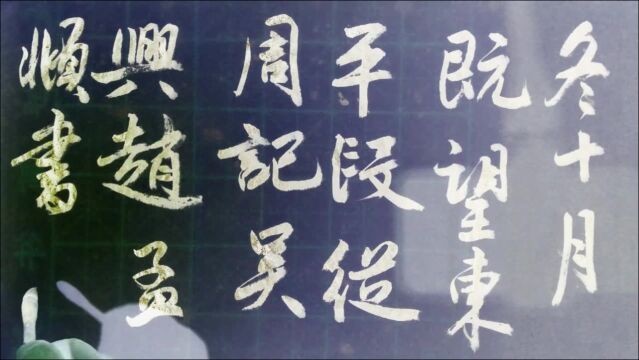 冬十月
既望東
平段從
周記吴
興趙孟
順書